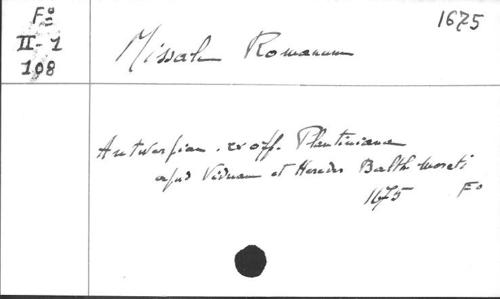 Fº
II-1
108
1675
Missale Romanum
Antwerpiae. ex off. Plantiniana
apud Viduam et Heredes Balth. Moreti
1675 Fº